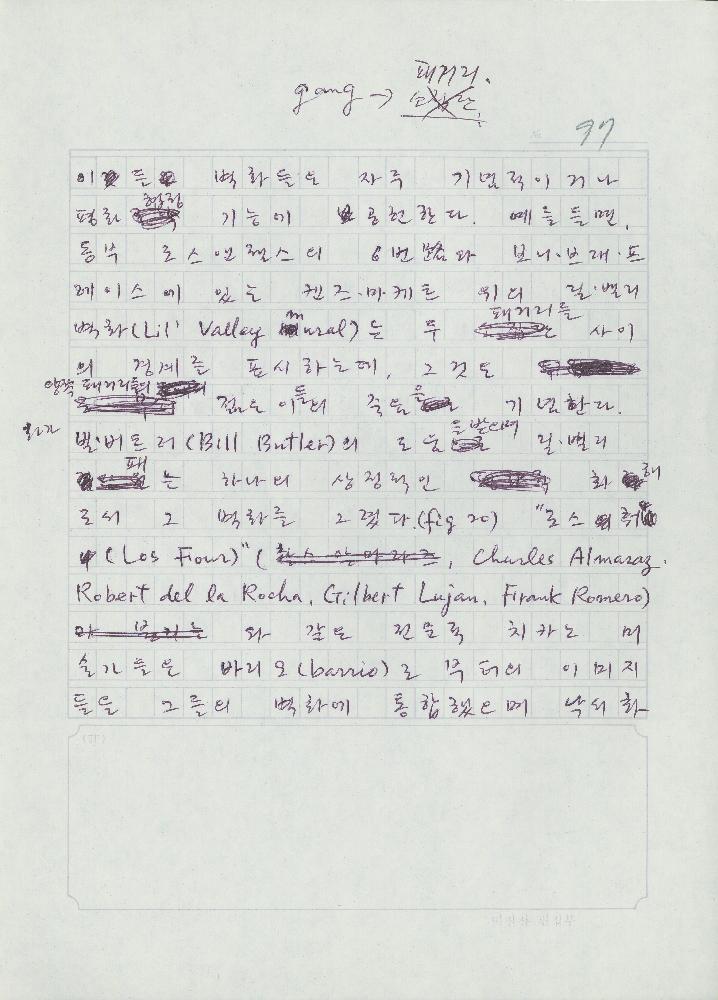 패거리.
gang →
97
이들 벽화들은 자주 기념적이거나
평화 협정 기능에 공헌한다. 예를들면,
동부 로스앤젤스의 6번가와 보니·브래·프
레이스에 있는 켄즈·마케트 위의 릴·밸리
벽화(Lil' Valley Mural)는 두 패거리들 사이
의 경계를 표시하는데, 그것은
양쪽 패거리들의 젊은이들의 죽음을 기념한다.
화가 빌·버틀러(Bill Butler)의 도움을 받으며 릴·밸리
패는 하나의 상징적인 화해
로써 그 벽화를 그렸다.(fig 20) "로스
(Los Four)" (, Charles Almaraz.
Robert del la Rocha, Gilbert Lujan, Frank Romero)
와 같은 전문적 치카노 미
술가들은 바리오(barrio)로 부터의 이미지
들을 그들의 벽화에 통합했으며 낙서화